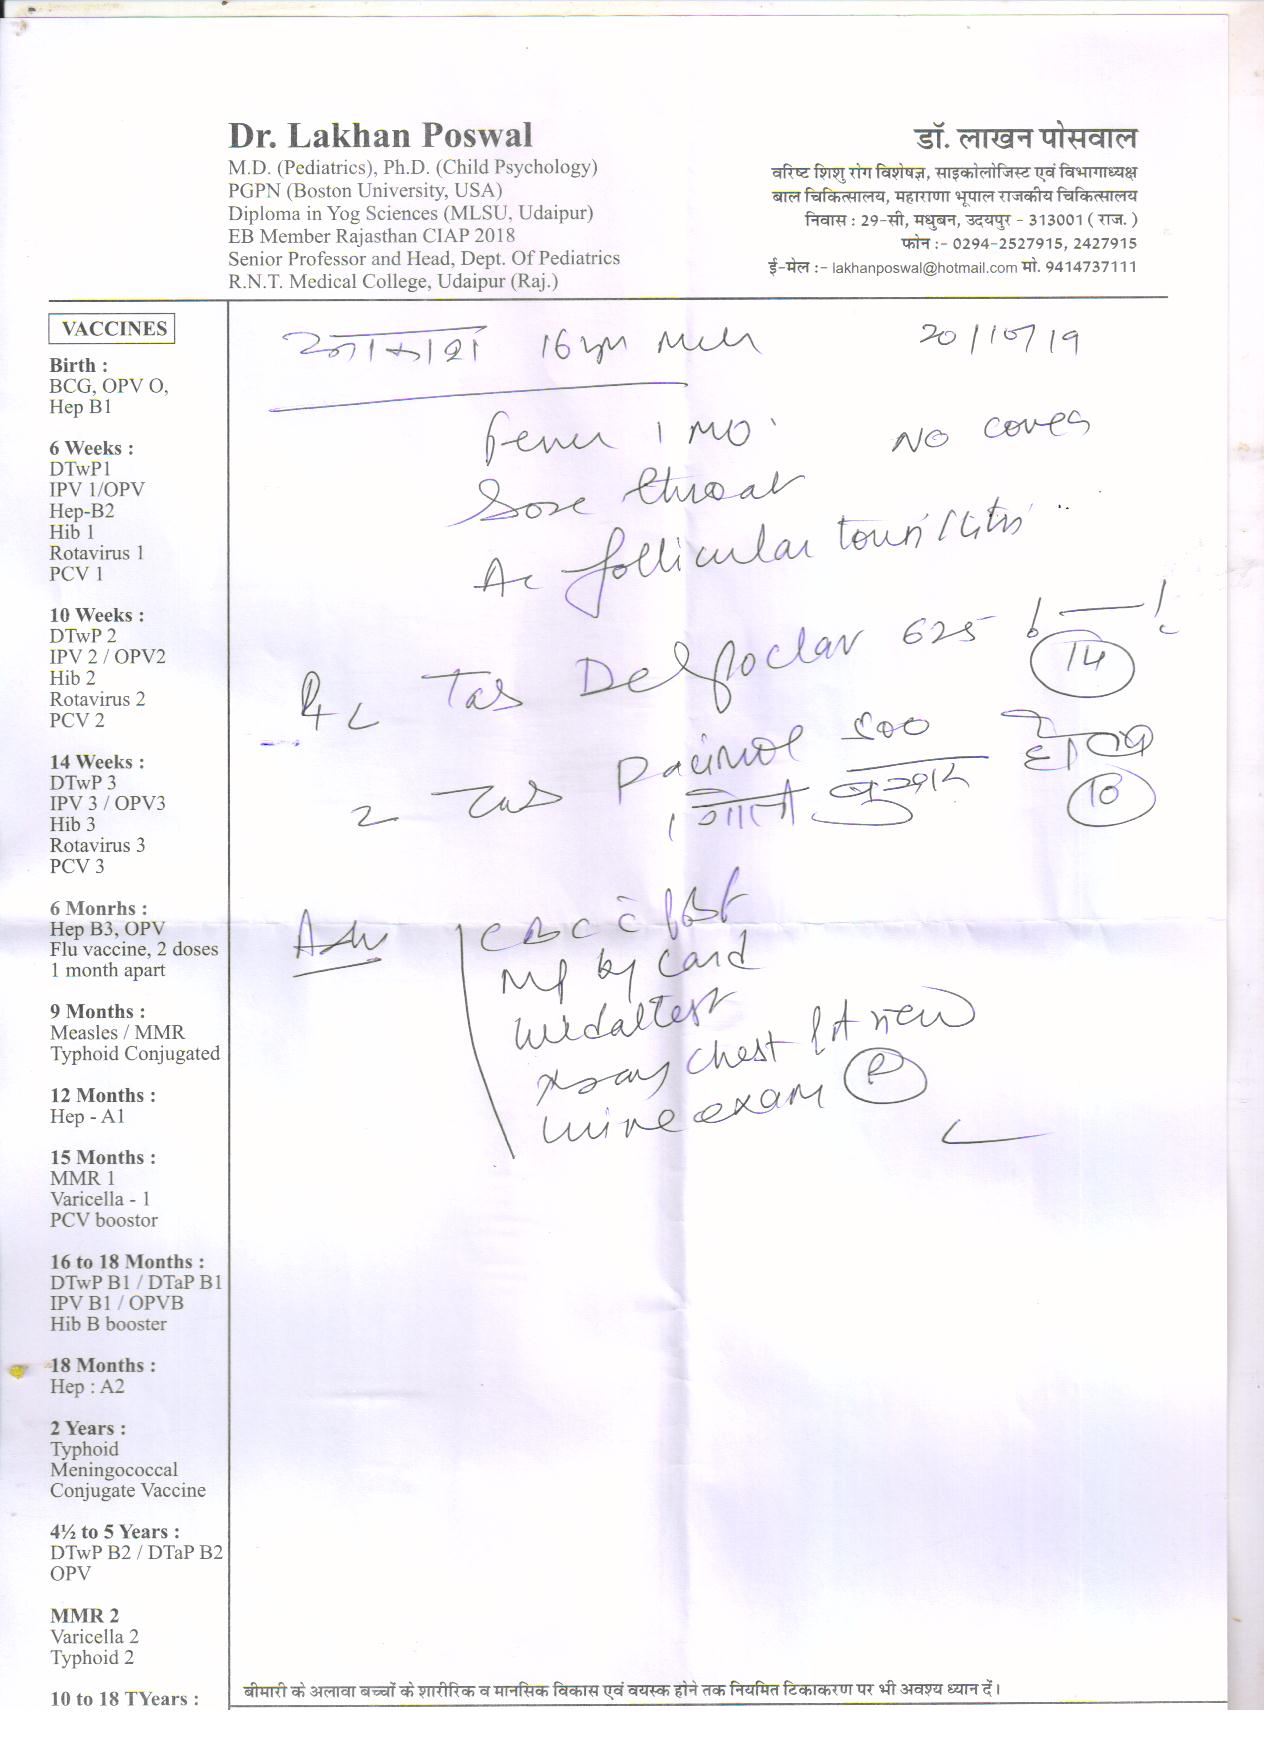 Dr. Lakhan Poswal
M.D. (Pediatrics), Ph.D. (Child Psychology)
PGPN (Boston University, USA)
Diploma in Yog Sciences (MLSU, Udaipur)
EB Member Rajasthan CIAP 2018
Senior Professor and Head, Dept. Of Pediatrics
R.N.T. Medical College, Udaipur (Raj.)
डॉ. लाखन पोसवाल
वरिष्ट शिशु रोग विशेषज्ञ, साइकोलोजिस्ट एवं विभागाध्यक्ष
बाल चिकित्सालय, महाराणा भूपाल राजकीय चिकित्सालय
निवास : 29-सी, मधुबन, उदयपुर - 313001 ( राज. )
फोन :- 0294-2527915, 2427915
ई-मेल :- lakhanposwal@hotmail.com मो. 9414737111
VACCINES
Birth :
BCG, OPV O,
Hep B1
6 Weeks :
DTwP1
IPV 1/OPV
Hep-B2
Hib 1
Rotavirus 1
PCV 1
10 Weeks :
DTwP 2
IPV 2 / OPV2
Hib 2
Rotavirus 2
PCV 2
14 Weeks :
DTwP 3
IPV 3 / OPV3
Hib 3
Rotavirus 3
PCV 3
6 Monrhs :
Hep B3, OPV
Flu vaccine, 2 doses
1 month apart
9 Months :
Measles / MMR
Typhoid Conjugated
12 Months :
Hep - A1
15 Months :
MMR 1
Varicella - 1
PCV boostor
16 to 18 Months :
DTwP B1 / DTaP B1
IPV B1 / OPVB
Hib B booster
18 Months :
Hep : A2
2 Years :
Typhoid
Meningococcal
Conjugate Vaccine
4½ to 5 Years :
DTwP B2 / DTaP B2
OPV
MMR 2
Varicella 2
Typhoid 2
10 to 18 TYears :
16 20/10/19
Fever 1 MO. NO
Sore throat
Ac follicular
Tab 625 14
2 Tab Pacimol 500
1 गोली बुखार 10
CBC c PBF
MP by card
widal test
xray chest PA view
urine exam
बीमारी के अलावा बच्चों के शारीरिक व मानसिक विकास एवं वयस्क होने तक नियमित टिकाकरण पर भी अवश्य ध्यान दें।